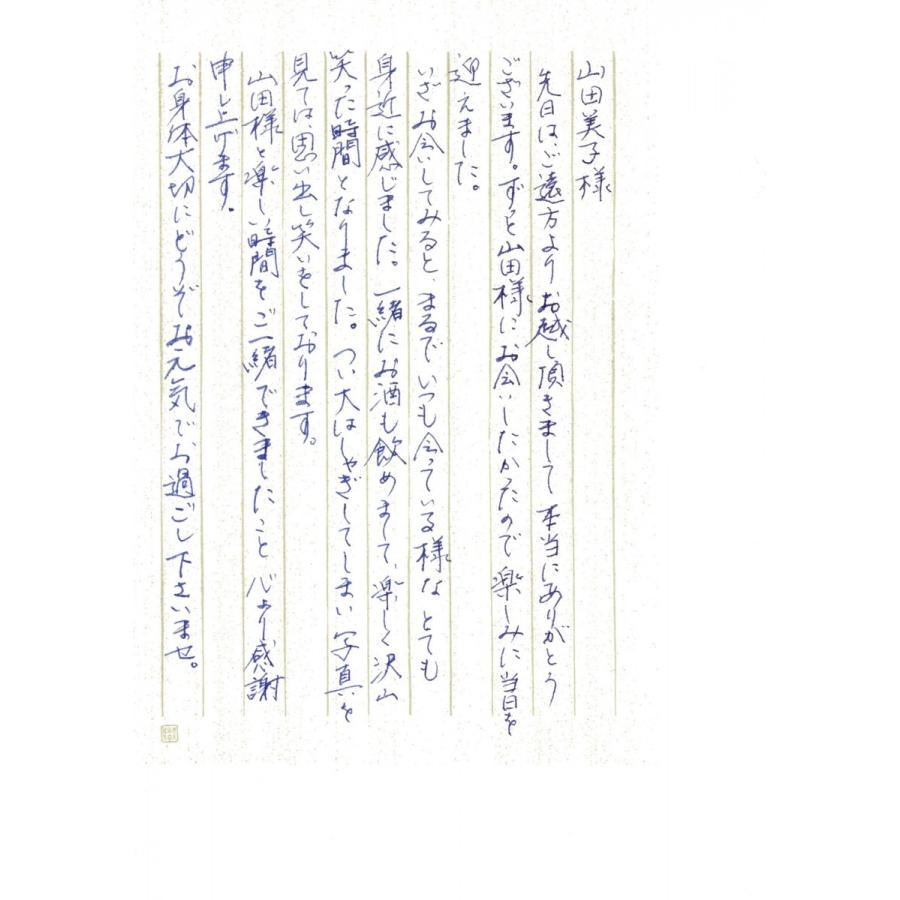 山田美子様
先日は、ご遠方よりお越し頂きまして本当にありがとう
ございます。ずっと山田様にお会いしたかったので楽しみに当日を
迎えました。
いざお会いしてみると、まるでいつも会っている様なとても
身近に感じました。一緒にお酒も飲めまして、楽しく沢山
笑った時間となりました。つい大はしゃぎしてしまい写真を
見ては、思い出し笑いをしております。
山田様と楽しい時間をご一緒できましたこと心より感謝
申し上げます。
お身体大切にどうぞお元気でお過ごし下さいませ。